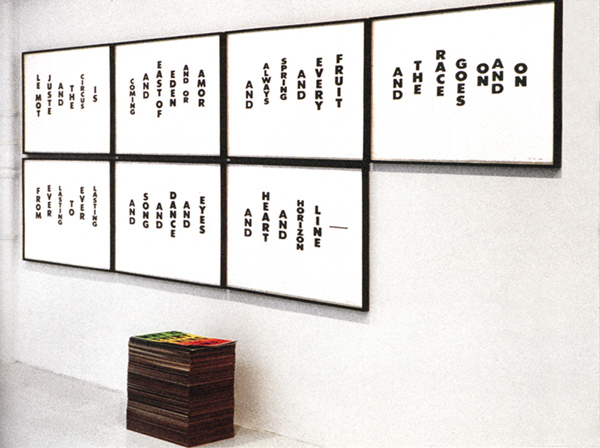 LE MOT JUSTE AND THE CIRCUS IS
COMING AND EAST OF EDEN AND OR AMOR
AND ALWAYS SPRING AND EVERY FRUIT
AND THE RACE GOES ON AND ON
FROM EVER LASTING TO EVER LASTING
AND SONG AND DANCE AND EYES
AND HEART AND HORIZON LINE —